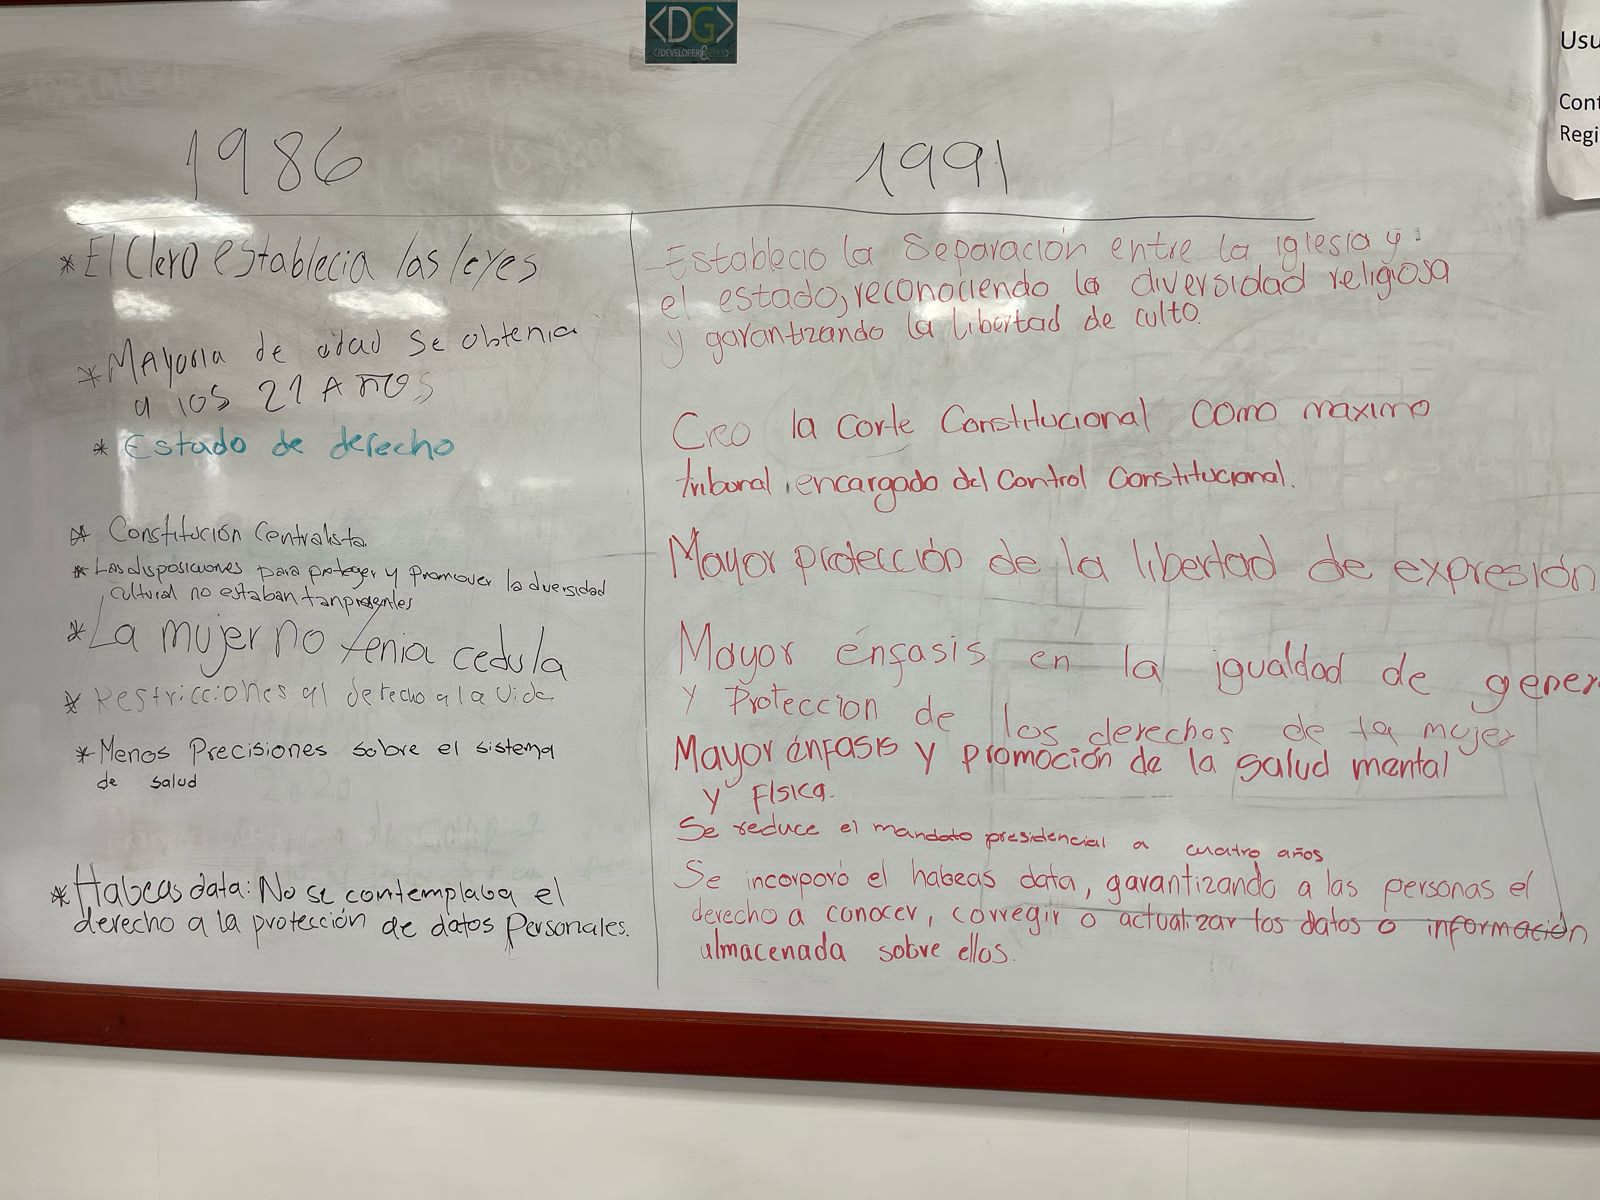 <DG>
Usu
Cont
Regi
1986
* El Clero establecia las leyes
* Mayoria de edad se obtenia
a los 21 Años
* Estado de derecho
* Constitución Centralista
* Las disposiciones para proteger y promover la diversidad
cultural no estaban tan presentes
* La mujer no tenia cedula
* Restricciones al derecho a la vida
* Menos Precisiones sobre el sistema
de salud
* Habeas data: No se contemplaba el
derecho a la protección de datos Personales.
1991
Establecio la Separación entre la iglesia y
el estado, reconociendo la diversidad religiosa
y garantizando la libertad de culto.
Creo la Corte Constitucional como maximo
tribunal encargado del Control Constitucional.
Mayor protección de la libertad de expresión
Mayor énfasis en la igualdad de gener
y Proteccion de los derechos de la mujer
Mayor énfasis y promoción de la salud mental
y Física.
Se reduce el mandato presidencial a cuatro años
Se incorporó el habeas data, garantizando a las personas el
derecho a conocer, corregir o actualizar los datos o información
almacenada sobre ellos.